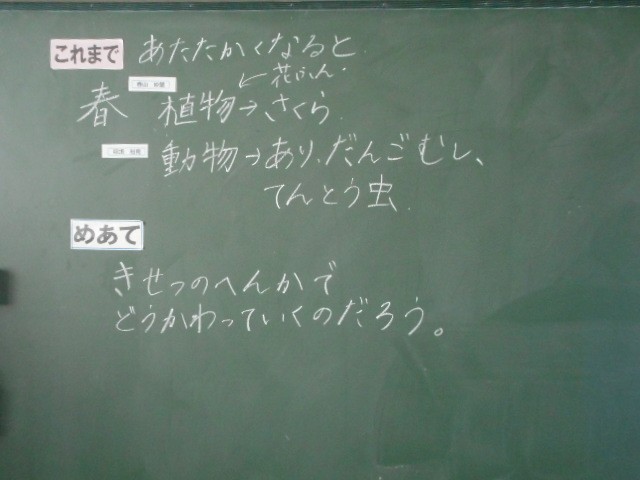 これまで あたたかくなると
↙花ふん.
春 植物→さくら
動物→あり、だんごむし、
てんとう虫.
めあて
きせつのへんかで
どうかわっていくのだろう。